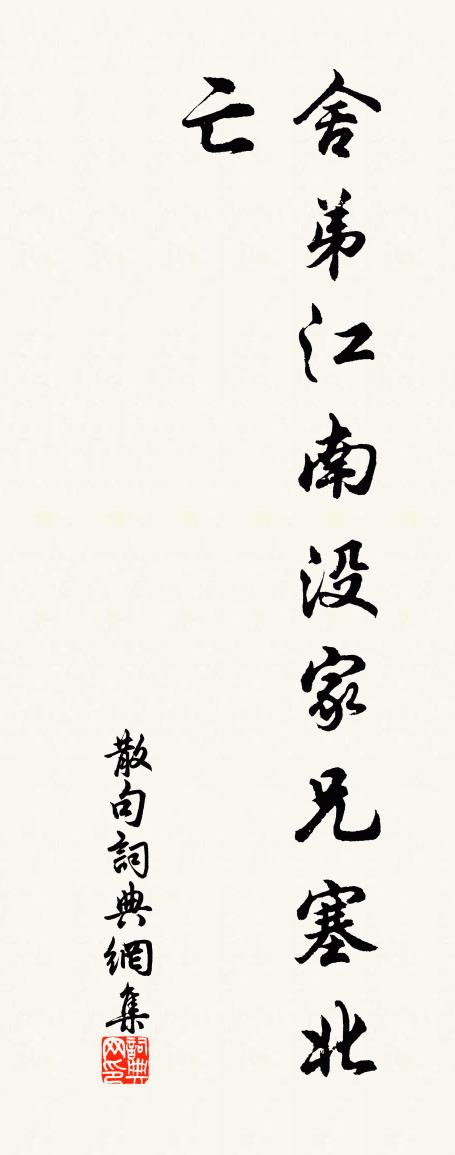 舍弟江南没家兄塞北
亡
散句詞典網集
詞典
网印